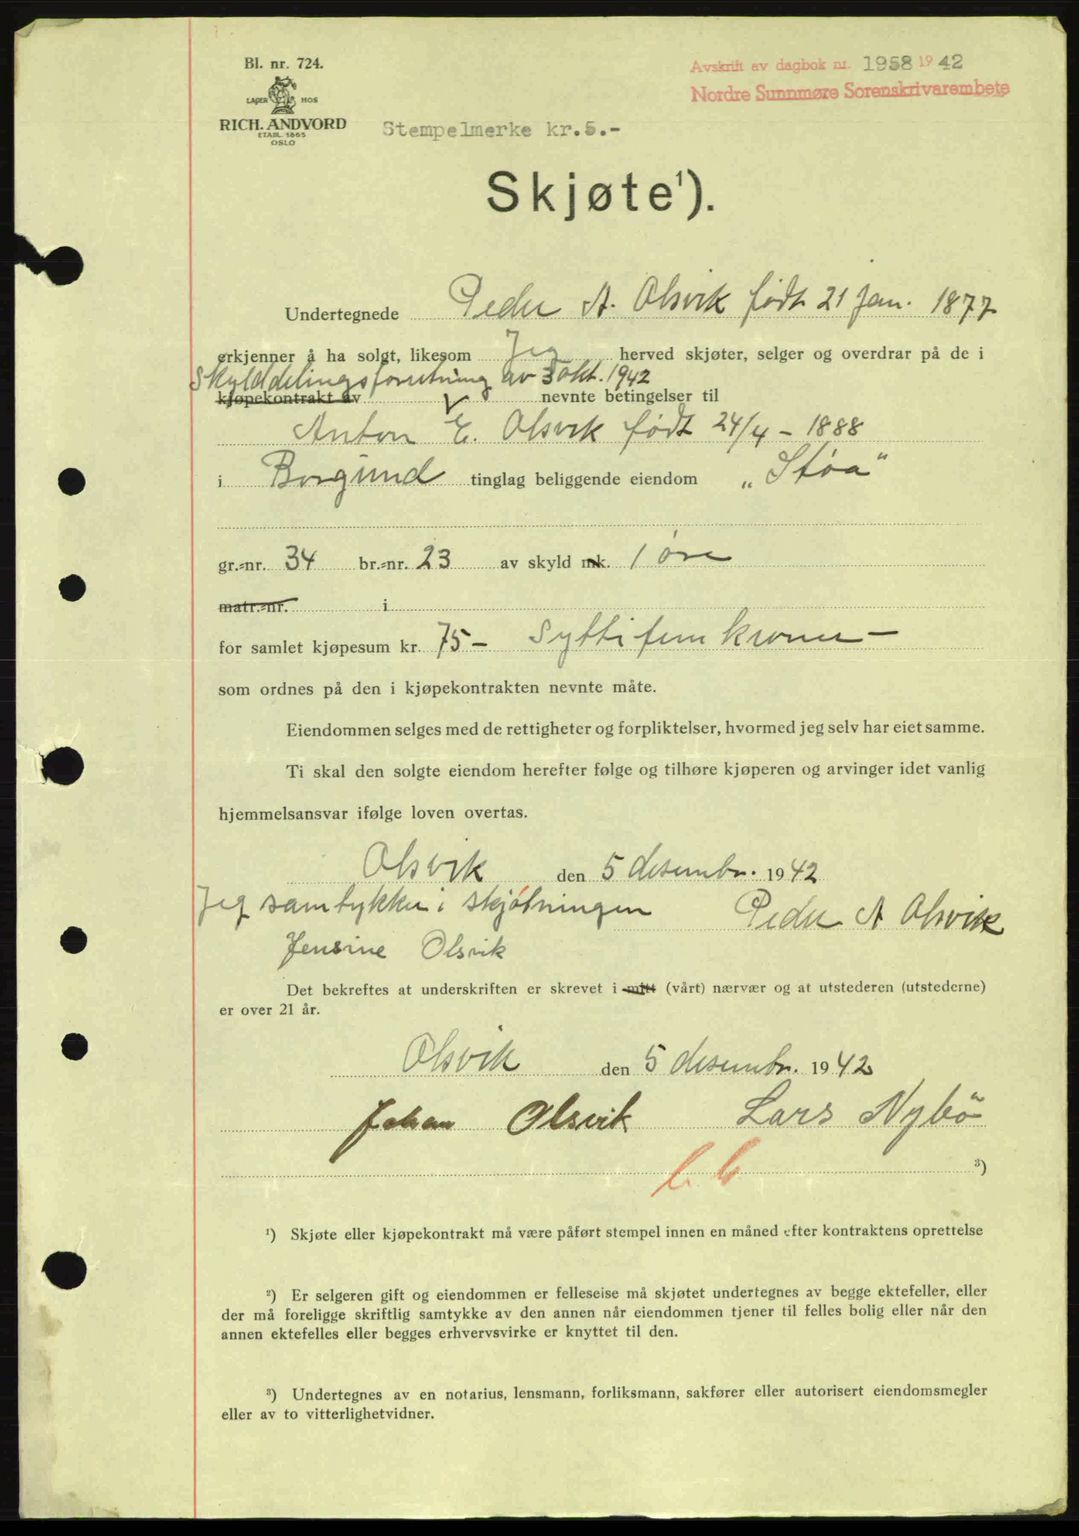 Bl. nr. 724.
LAGER HOS
RICH. ANDVORD
ETABL. 1865
OSLO
Avskrift av dagbok nr. 1958 1942
Nordre Sunnmøre Sorenskrivarembete
Stempelmerke kr.5.-
Skjøte¹).
Undertegnede Peder A. Olsvik født 21 jan. 1877
erkjenner å ha solgt, likesom Jeg herved skjøter, selger og overdrar på de i
Skylddelingsforretning av 3 okt. 1942
kjøpekontrakt av nevnte betingelser til
Anton E. Olsvik født 24/4 - 1888
i Borgund tinglag beliggende eiendom „Støa“
gr.-nr. 34 br.-nr. 23 av skyld mk. 1 øre
matr.-nr. i
for samlet kjøpesum kr. 75- Syttifem kroner —
som ordnes på den i kjøpekontrakten nevnte måte.
Eiendommen selges med de rettigheter og forpliktelser, hvormed jeg selv har eiet samme.
Ti skal den solgte eiendom herefter følge og tilhøre kjøperen og arvinger idet vanlig
hjemmelsansvar ifølge loven overtas.
Olsvik den 5 desembr. 1942
Jeg samtykker i skjötningen Peder A Olsvik
Jensine Olsvik
Det bekreftes at underskriften er skrevet i mitt (vårt) nærvær og at utstederen (utstederne)
er over 21 år.
Olsvik den 5 desembr. 1942
Johan Olsvik Lars Nybö
³)
¹) Skjøte eller kjøpekontrakt må være påført stempel innen en måned efter kontraktens oprettelse
²) Er selgeren gift og eiendommen er felleseise må skjøtet undertegnes av begge ektefeller, eller
der må foreligge skriftlig samtykke av den annen når eiendommen tjener til felles bolig eller når den
annen ektefelles eller begges erhvervsvirke er knyttet til den.
³) Undertegnes av en notarius, lensmann, forliksmann, sakfører eller autorisert eiendomsmegler
eller av to vitterlighetvidner.